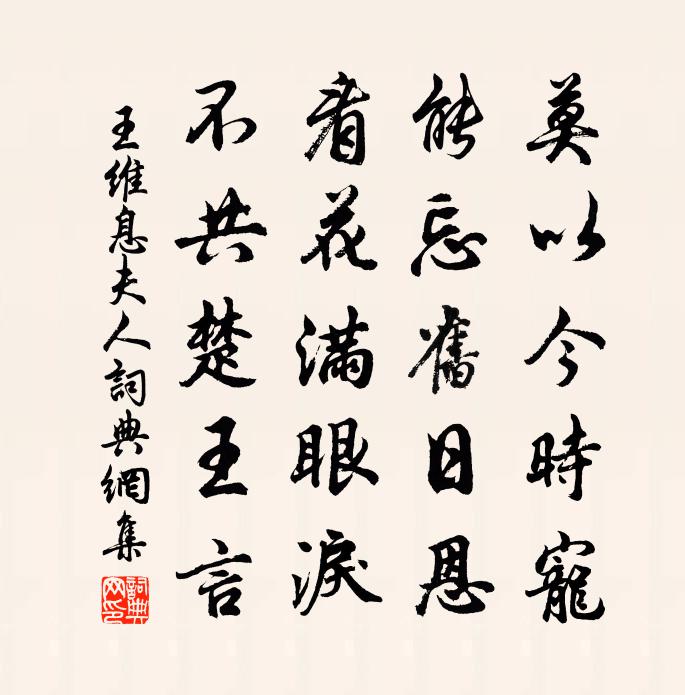 莫以今時寵
能忘舊日恩
看花滿眼淚
不共楚王言
王維息夫人詞典網集
詞典网印